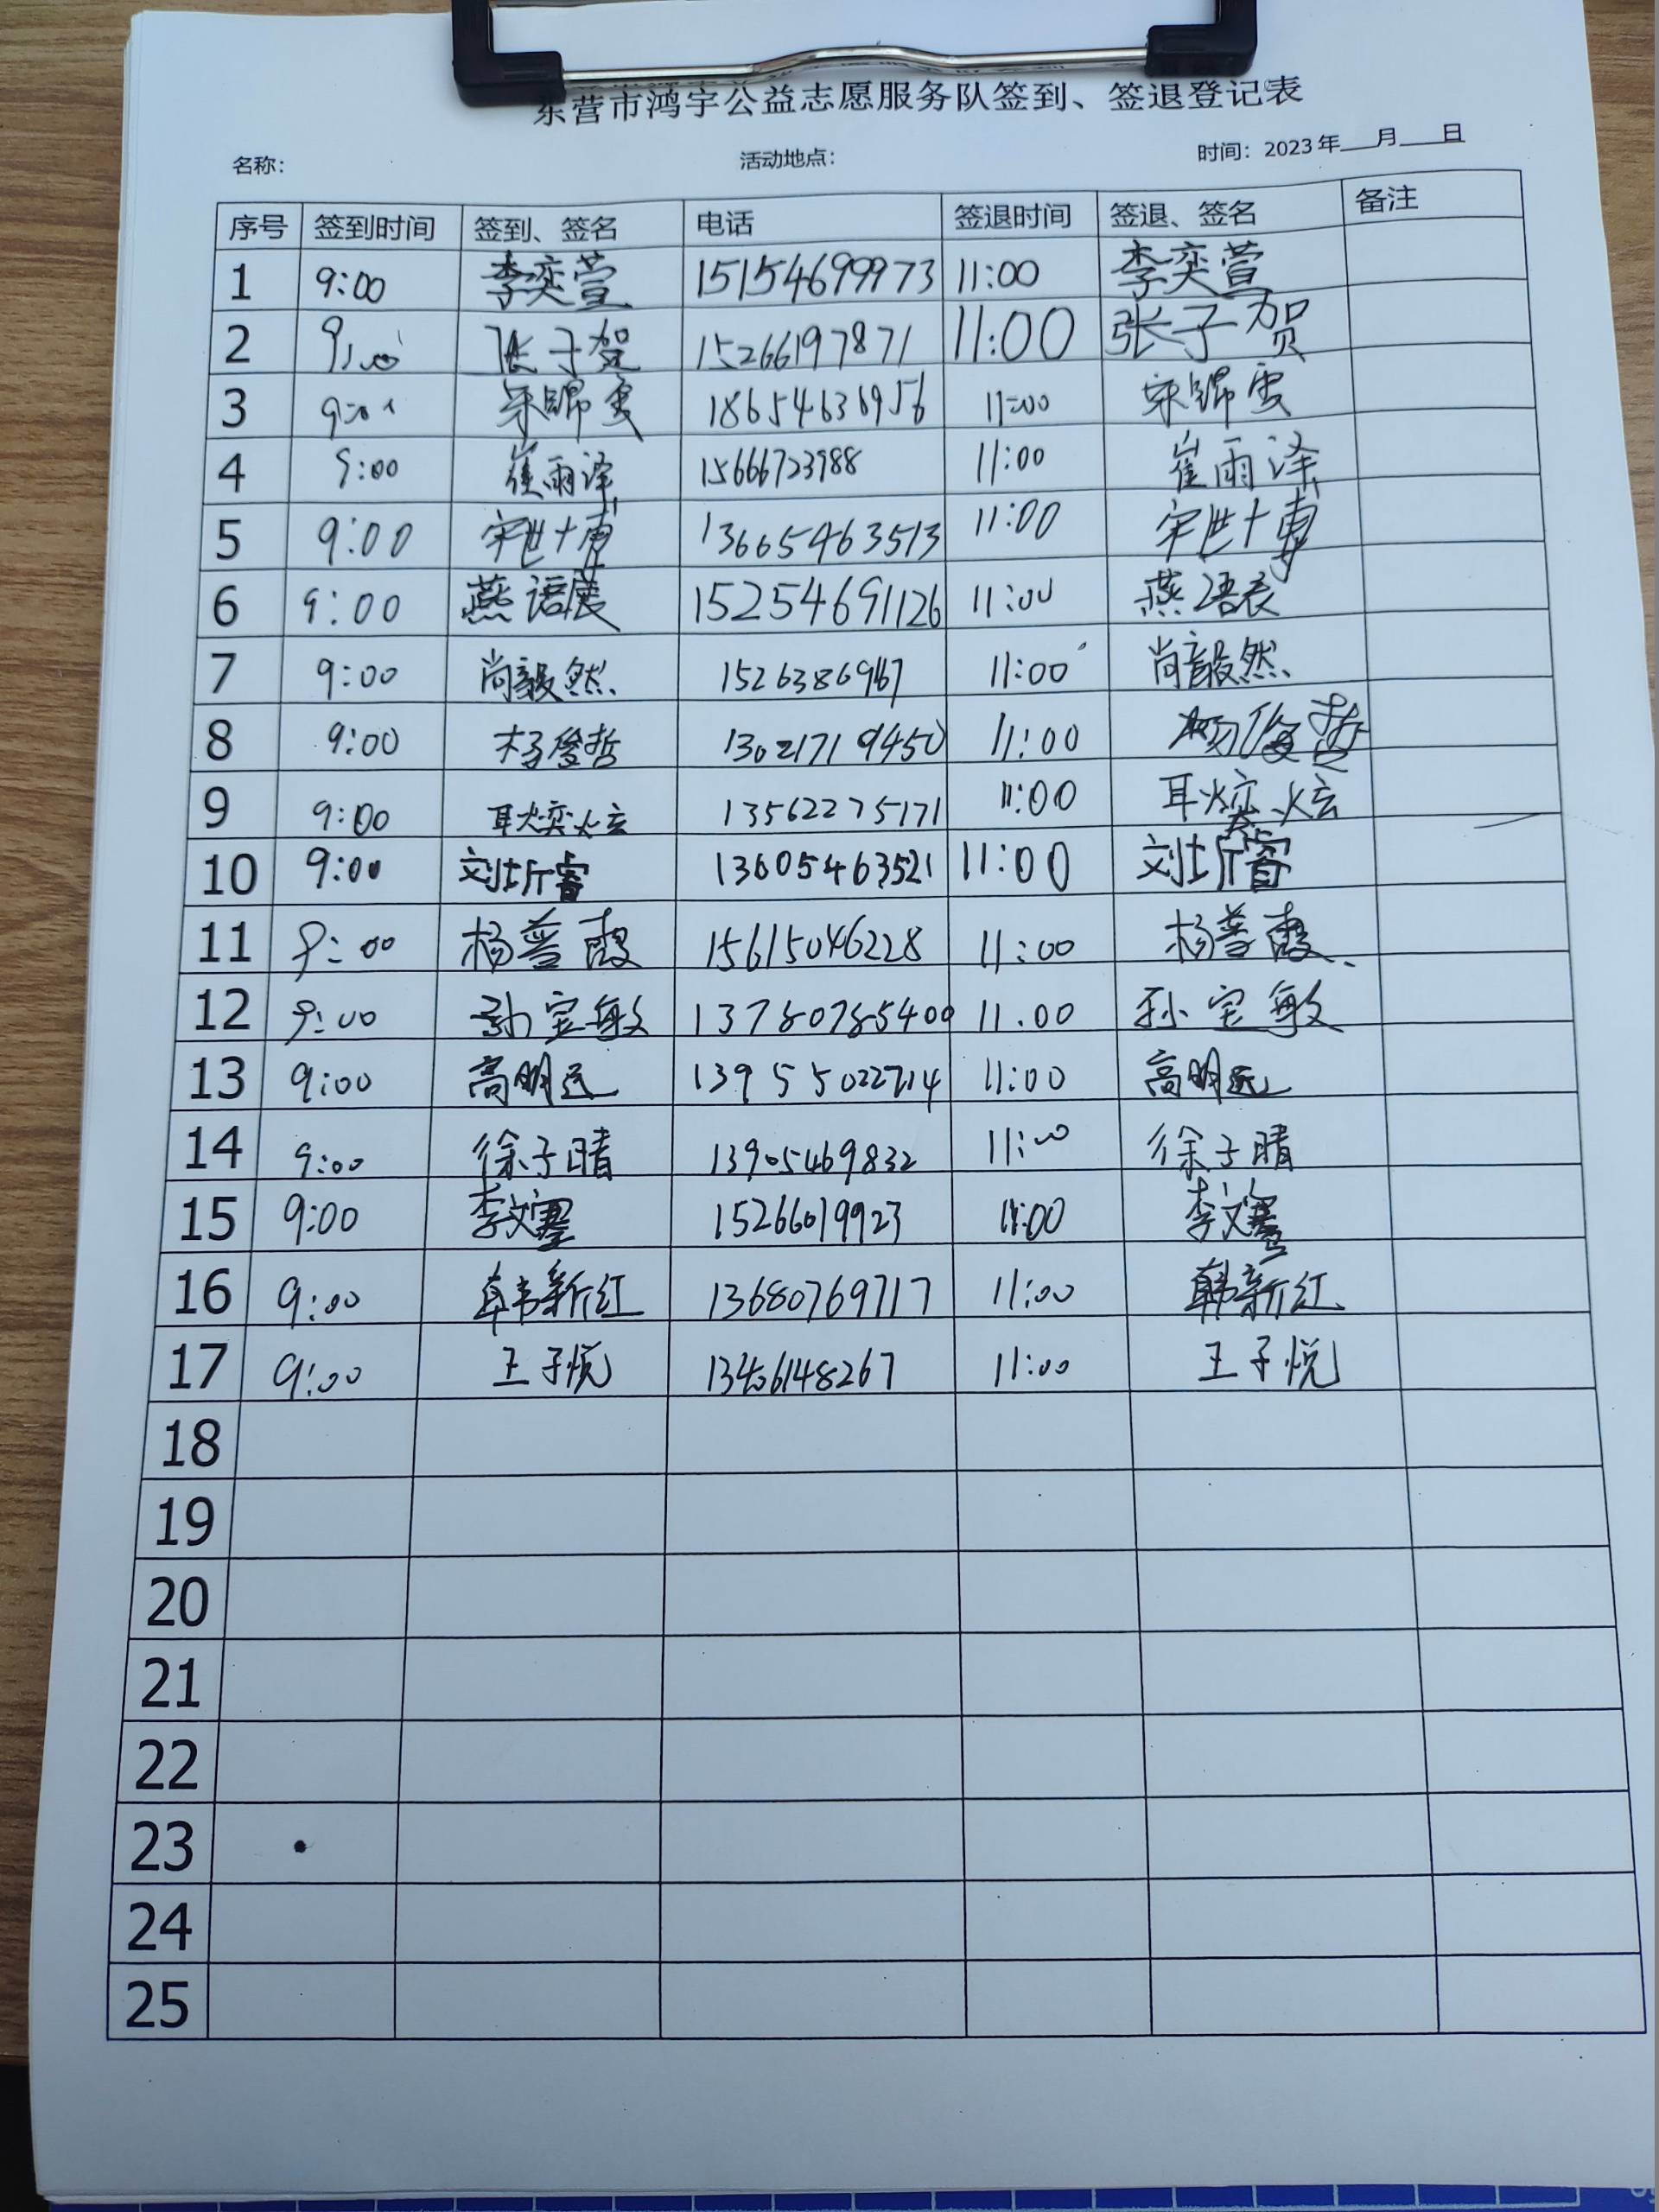 东营市鸿宇公益志愿服务队签到、签退登记表
名称： 活动地点： 时间：2023年___月___日
序号 签到时间 签到、签名 电话 签退时间 签退、签名 备注
1 9:00 李奕萱 15154699973 11:00 李奕萱
2 9:00 张子贺 15266197871 11:00 张子贺
3 宋锦雯 18654636956 11:00 宋锦雯
4 9:00 崔雨泽 15666723988 11:00 崔雨泽
5 9:00 宋世博 13665463513 11:00 宋世博
6 9:00 燕语晨 15254691126 11:00 燕语
7 9:00 尚毅然 11:00 尚毅然
8 9:00 杨俊哲 13021719450 11:00 杨俊哲
9 9:00 耿奕炫 13562275171 11:00 耿奕炫
10 9:00 刘圻睿 13605463521 11:00 刘圻睿
11 9:00 杨普霞 15615046228 11:00 杨普霞
12 9:00 孙宝敏 13780785400 11:00 孙宝敏
13 9:00 高明远 11:00 高明远
14 9:00 徐子晴 13905469832 11:00 徐子晴
15 9:00 李文骞 15266019923 11:00 李文骞
16 9:00 韩新红 13680769717 11:00 韩新红
17 9:00 王子悦 11:00 王子悦
18
19
20
21
22
23
24
25